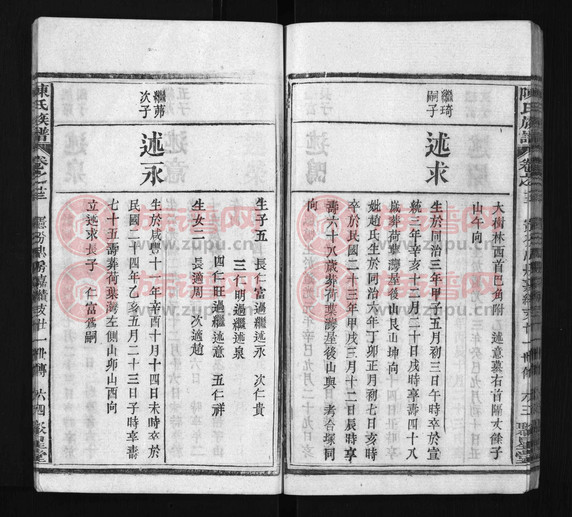 陳氏族譜
卷之三
大樹林西首巴角附
述意墓右首隔大餘子
山午向
繼琦
嗣子
述求
生於同治三年甲子五月初三日午時卒於宣
統三年辛亥十一月二十日戌時享壽四十八
歲葬荷葉灣屋後山艮山坤向
妣趙氏生於同治六年丁卯正月初七日亥時
卒於民國二十三年甲戌三月十二日辰時享
壽六十八歲葬荷葉灣屋後山與 考合塚同
向
生子五 長仁富過繼述永 次仁貴
三仁明過繼述泉
四仁旺過繼述意 五仁祥
生女二 長適周 次適趙
繼茀
次子
述永
生於咸豐十一年辛酉十月十四日未時卒於
民國二十四年乙亥五月二十三日子時享壽
七十五壽葬荷葉灣左側山卯山酉向
立述求長子 仁富爲嗣
陳氏族譜
卷之三
廿一世傳
六四
聚星堂
族譜网
www.zupu.cn